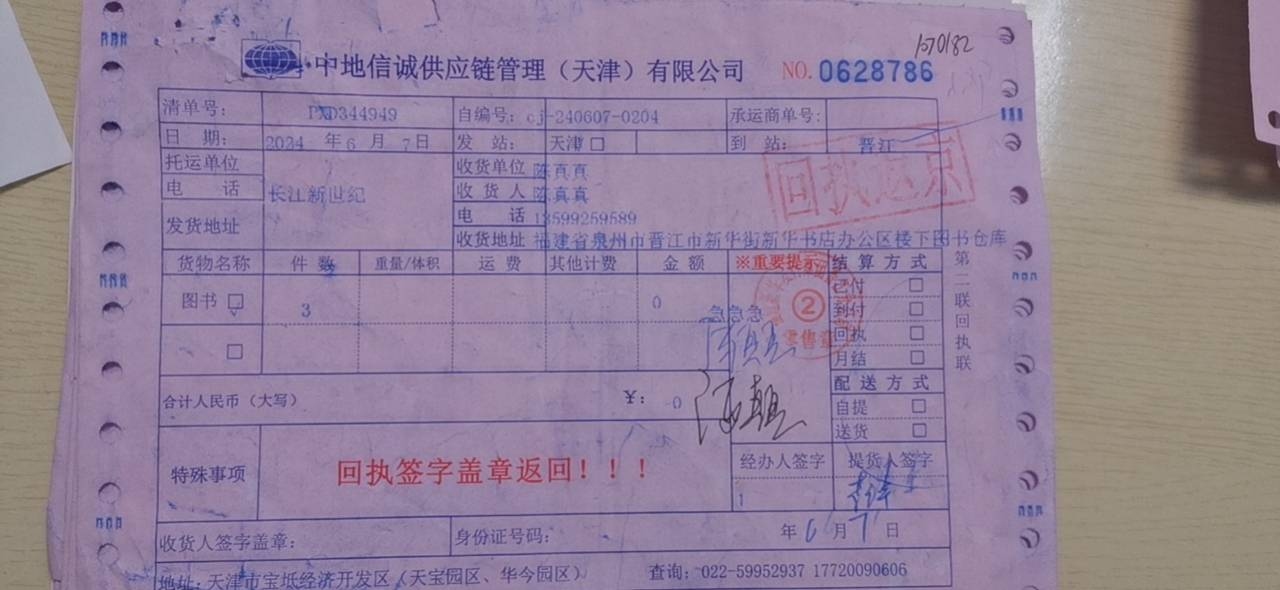 1070182
中地信诚供应链管理（天津）有限公司 NO.0628786
清单号： PXD344949 自编号：cj-240607-0204 承运商单号：
日 期： 2024 年 6 月 7日 发 站： 天津□ 到 站： 晋江
托运单位 长江新世纪 收货单位 陈真真
电 话 收 货 人 陈真真
回执返京
电 话 13599259589
发货地址 收货地址 福建省泉州市晋江市新华街新华书店办公区楼下图书仓库
货物名称 件 数 重量/体积 运 费 其他计费 金 额 ※重要提示 结 算 方 式
图书 3 0 急急急 已付 □
到付 □
② 零售章
□ 回执 □
月结 □
合计人民币（大写） ￥： 0 配 送 方 式
自提 □
送货 □
特殊事项 回执签字盖章返回！！！ 经办人签字 提货人签字
1
收货人签字盖章： 身份证号码： 年 6 月 7 日
地址：天津市宝坻经济开发区（天宝园区、华今园区） 查询：022-59952937 17720090606
第二联回执联